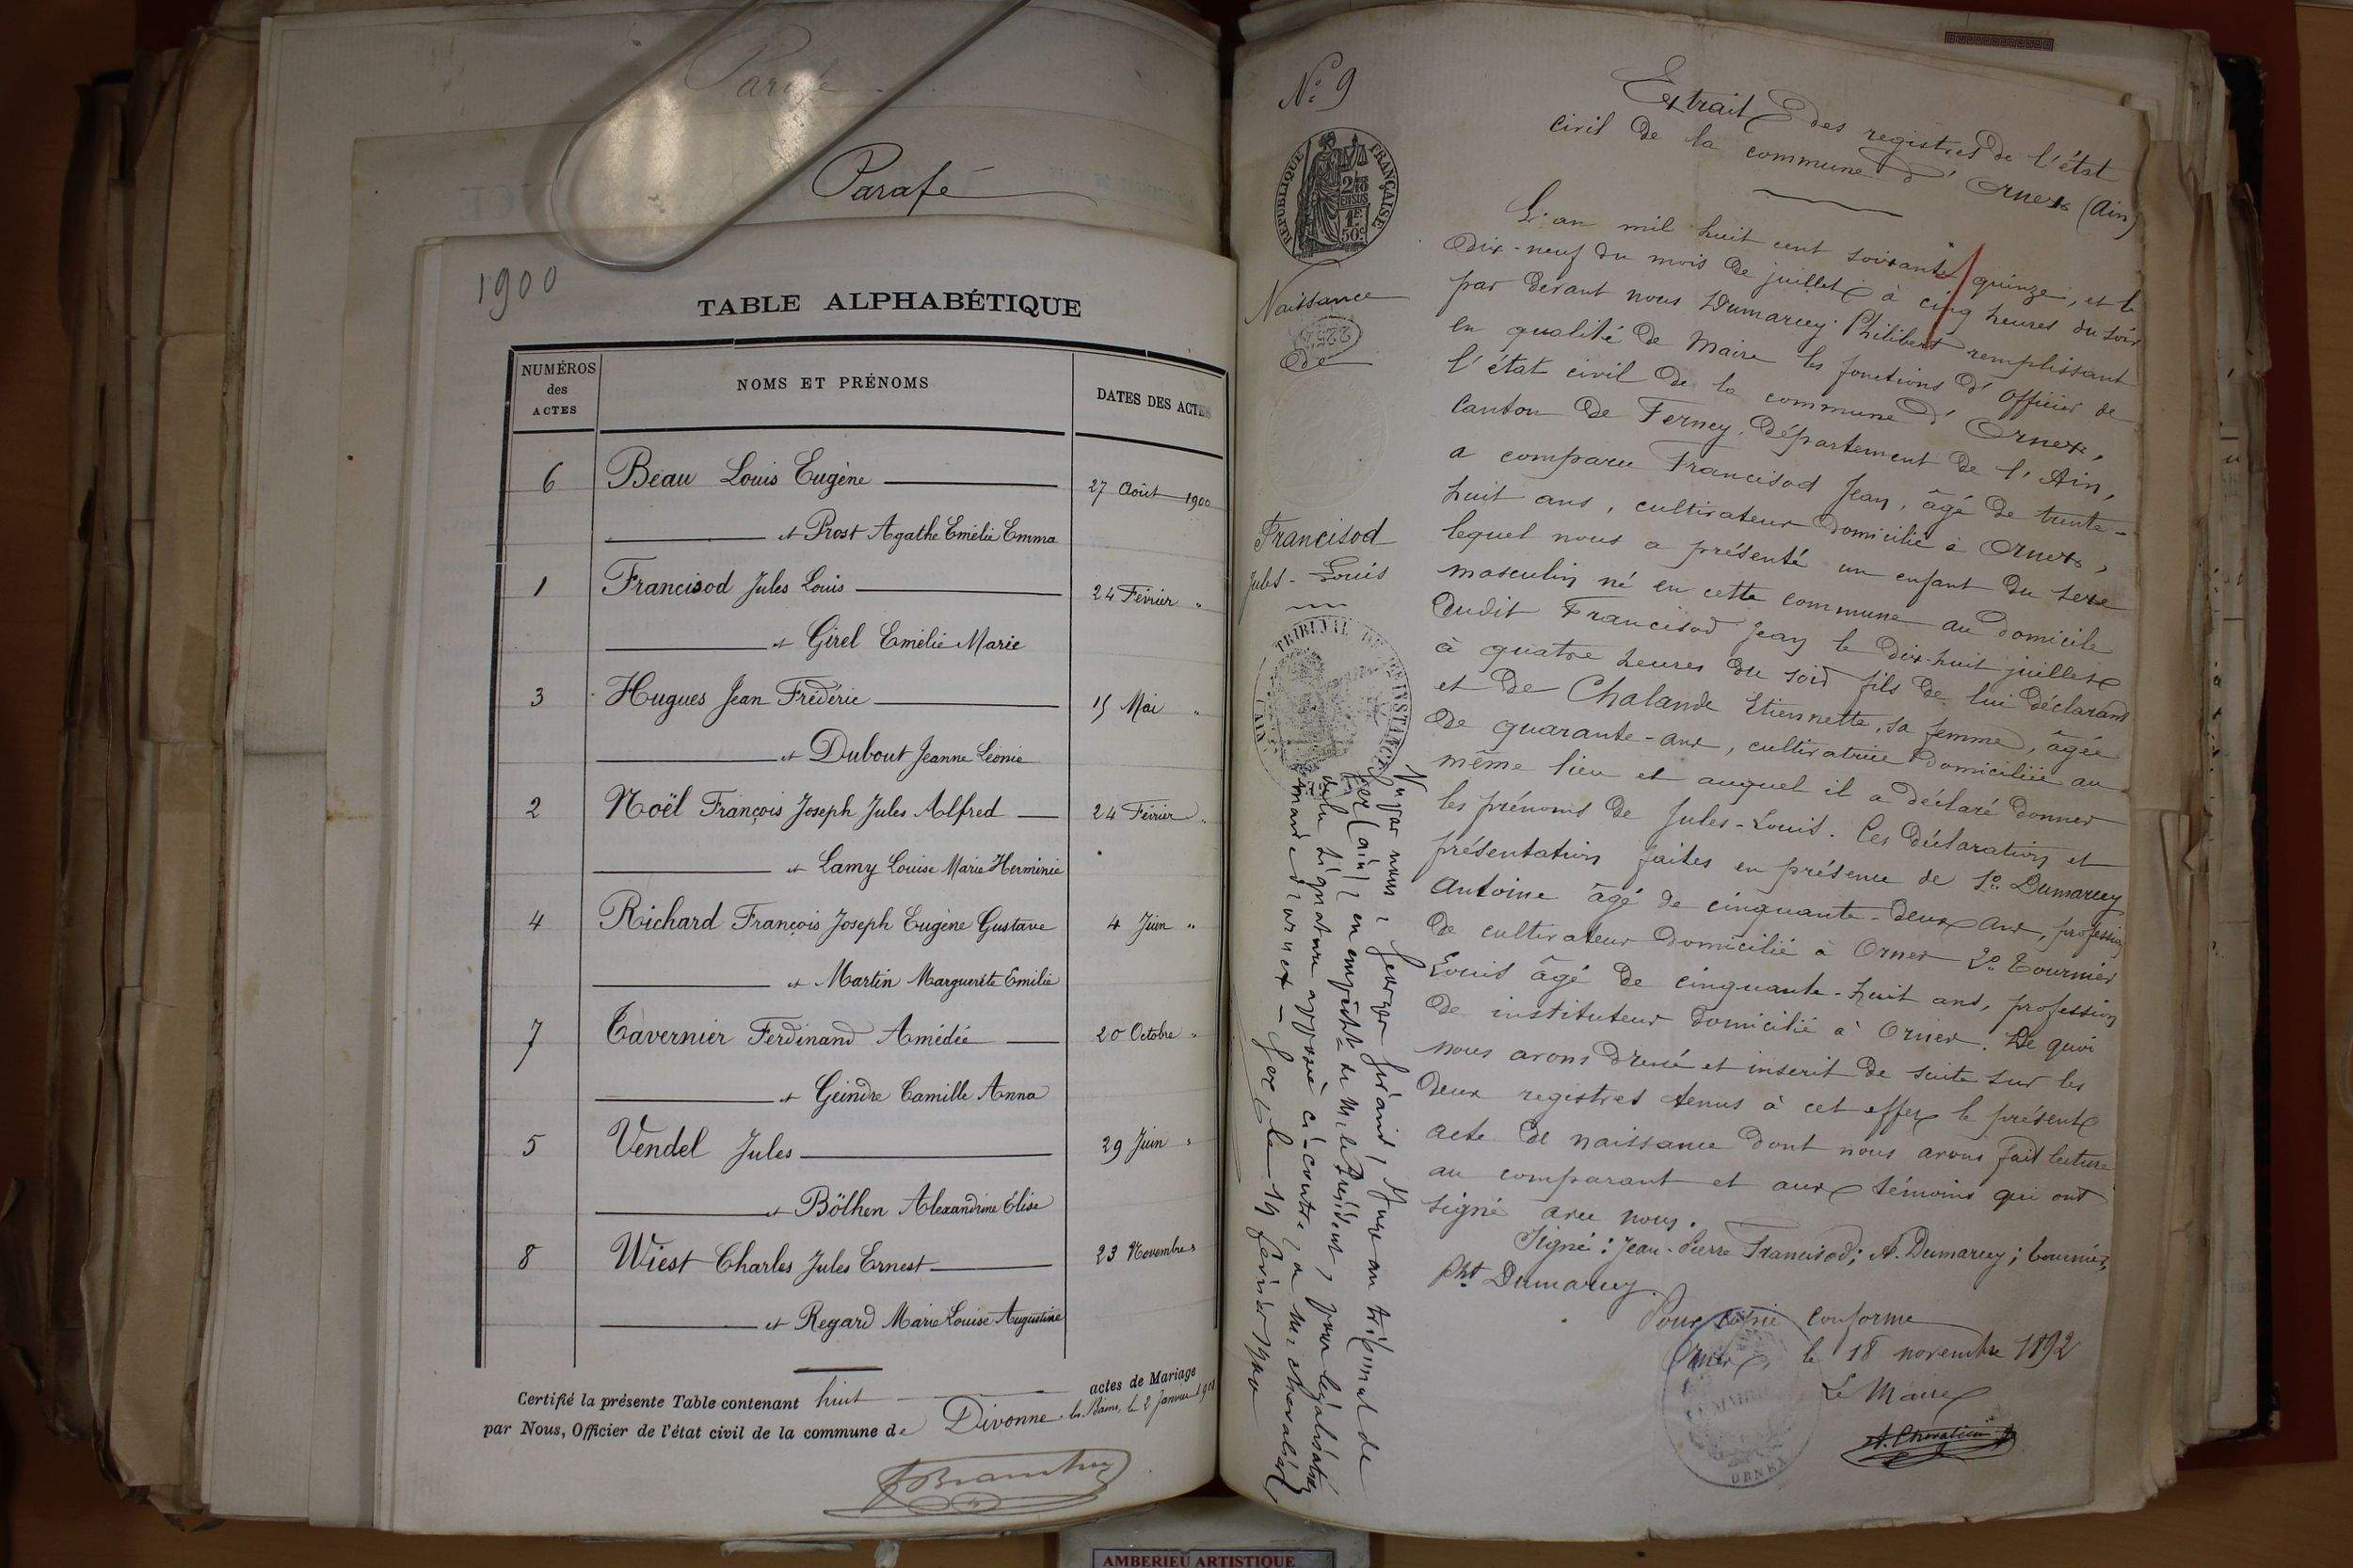 Parafé
Parafé
1900
TABLE ALPHABÉTIQUE
NUMÉROS des ACTES
NOMS ET PRÉNOMS
DATES DES ACTES
6 Beau Louis Eugène 27 Août 1900
et Prost Agathe Emélie Emma
1 Francisod Jules Louis 24 Février "
et Girel Emélie Marie
3 Hugues Jean Frédéric 15 Mai "
et Dubout Jeanne Léonie
2 Noël François Joseph Jules Alfred 24 Février "
et Lamy Louise Marie Herminie
4 Richard François Joseph Eugène Gustave 4 Juin "
et Martin Marguerite Emilie
7 Tavernier Ferdinand Amédée 20 Octobre "
et Geindre Camille Anna
5 Vendel Jules 29 Juin "
et Bölhen Alexandrine Élise
8 Wiest Charles Jules Ernest 23 Novembre "
et Regard Marie Louise Augustine
Certifié la présente Table contenant huit actes de Mariage
par Nous, Officier de l'état civil de la commune de Divonne-les-Bains, le 2 Janvier 1901
N° 9
RÉPUBLIQUE FRANÇAISE
2/10 EN SUS
1F 50c
Naissance
De
Francisod
Jules-Louis
TRIBUNAL DE 1ère INSTANCE
Vu par nous, Georges Giraud, Juge au tribunal de
Gex (ain), en empêcht de M. le Président, pour légalisation
de la signature apposée ci-contre, de M. Chevalier,
maire d'ornex - Gex, le 19 février 1900
Extrait des registres de l'état
civil de la commune d'Ornex (Ain)
L'an mil huit cent soixante quinze, et le
dix-neuf du mois de juillet à cinq heures du soir
par devant nous Dumarcey Philibert remplissant
en qualité de Maire les fonctions d'Officier de
l'état civil de la commune d'Ornex,
Canton de Ferney, Département de l'Ain,
a comparu Francisod Jean, âgé de trente-
huit ans, cultivateur domicilié à Ornex,
lequel nous a présenté un enfant du sexe
masculin né en cette commune au domicile
dudit Francisod Jean le dix-huit juillet
à quatre heures du soir fils de lui déclarant
et de Chalande Etiennette, sa femme, âgée
de quarante-ans, cultivatrice domiciliée au
même lieu et auquel il a déclaré donner
les prénoms de Jules-Louis. Ces déclaration et
présentation faites en présence de 1° Dumarcey
Antoine âgé de cinquante-deux ans, profession
de cultivateur domicilié à Ornex 2° Tournier
Louis âgé de cinquante-huit ans, profession
de instituteur domicilié à Ornex. De quoi
nous avons dressé et inscrit de suite sur les
deux registres tenus à cet effet le présent
acte de naissance dont nous avons fait lecture
au comparant et aux témoins qui ont
signé avec nous.
Signé : Jean-Pierre Francisod; A. Dumarcey; Tournier,
Pht Dumarcey
Pour copie conforme
Ornex, le 18 novembre 1892
Le Maire
A. Chevalier
ORNEX
AMBERIEU ARTISTIQUE